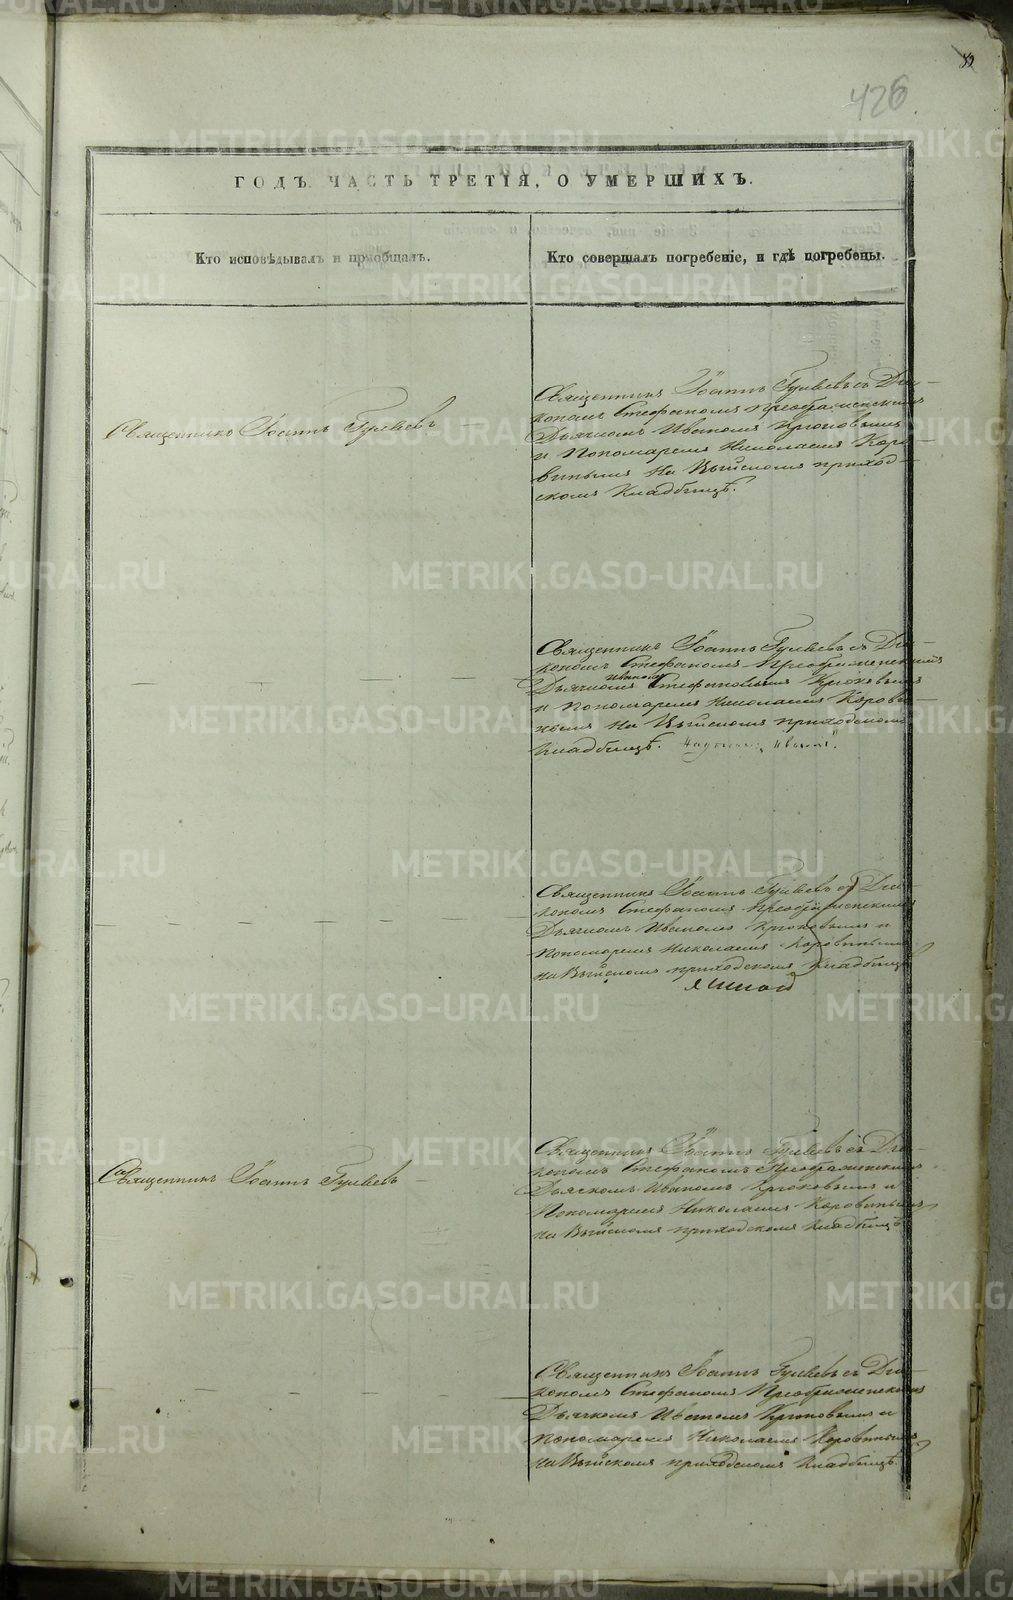 426
ГОДЪ. ЧАСТЬ ТРЕТІЯ, О УМЕРШИХЪ.
Кто исповѣдывалъ и пріобщалъ.
Кто совершалъ погребеніе, и гдѣ погребены.
Священникъ Іоаннъ Гуляевъ
Священникъ Іоаннъ Гуляевъ съ Діа-
кономъ Стефаномъ Преображенскимъ
Дьячкомъ Иваномъ Крюковымъ
и Пономаремъ Николаемъ Коро-
винымъ на Выйскомъ приход-
скомъ Кладбищѣ.
Священникъ Іоаннъ Гуляевъ съ Діа-
кономъ Стефаномъ Преображенскимъ
Иваномъ
Дьячкомъ Стефановымъ Крюковымъ
и Пономаремъ Николаемъ Корови-
нымъ на Выйскомъ приходскомъ
Кладбищѣ.
Священникъ Іоаннъ Гуляевъ съ Діа-
кономъ Стефаномъ Преображенскимъ
Дьячкомъ Иваномъ Крюковымъ и
Пономаремъ Николаемъ Коровинымъ
на Выйскомъ приходскомъ Кладбищѣ
Священникъ Іоаннъ Гуляевъ
Священникъ Іоаннъ Гуляевъ съ Діа-
кономъ Стефаномъ Преображенскимъ
Дьячкомъ Иваномъ Крюковымъ и
Пономаремъ Николаемъ Коровинымъ,
на Выйскомъ приходскомъ кладбищѣ
Священникъ Іоаннъ Гуляевъ съ Діа-
кономъ Стефаномъ Преображенскимъ
Дьячкомъ Иваномъ Крюковымъ и
Пономаремъ Николаемъ Коровинымъ
на Выйскомъ приходскомъ Кладбищѣ.
METRIKI.GASO-URAL.RU